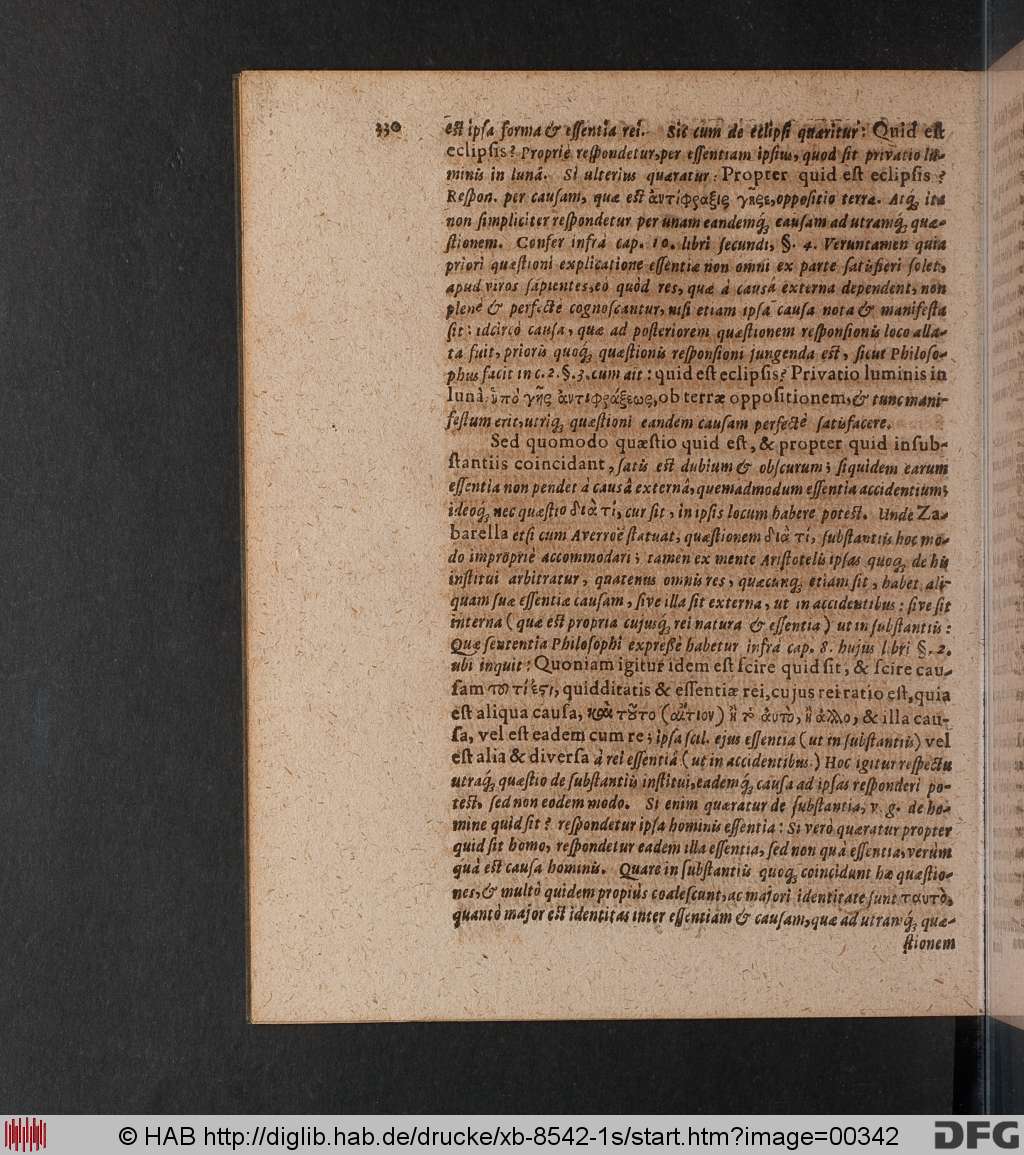 330
est ipsa forma & essentia rei. Sic cum de eclipsi quæritur: Quid est
eclipsis? Propriè respondetur, per essentiam ipsius, quod sit privatio lu-
minis in lunâ. Si ulterius quæratur: Propter quid est eclipsis?
Respon. per causam, quæ est ἀντίφραξις γῆς, oppositio terræ. Atq; ita
non simpliciter respondetur per unam eandemq; causam ad utramq; quæ-
stionem. Confer infrà cap. 10. libri secundi, §. 4. Veruntamen quia
priori quæstioni explicatione essentiæ non omni ex parte satisfieri solet,
apud viros sapientes, eò quòd res, quæ à causâ externa dependent, non
plenè & perfectè cognoscantur, nisi etiam ipsa causa nota & manifesta
sit: idcircò causa, quæ ad posteriorem quæstionem responsionis loco alla-
ta fuit, prioris quoq; quæstionis responsioni jungenda est, sicut Philoso-
phus facit in c. 2. §. 3. cum ait: quid est eclipsis? Privatio luminis in
lunâ ὑπὸ γῆς ἀντιφράξεως, ob terræ oppositionem, & tunc mani-
festum erit, utriq; quæstioni eandem causam perfectè satisfacere.
Sed quomodo quæstio quid est, & propter quid in sub-
stantiis coincidant, satis est dubium & obscurum; siquidem earum
essentia non pendet à causâ externâ, quemadmodum essentia accidentium;
ideoq; nec quæstio διὰ τί, cur sit, in ipsis locum habere potest. Unde Za-
barella etsi cum Averroë statuat, quæstionem διὰ τί, substantiis hoc mo-
do impropriè accommodari; tamen ex mente Aristotelis ipsas quoq; de his
institui arbitratur, quatenus omnis res, quæcunq; etiam sit, habet ali-
quam suæ essentiæ causam, sive illa sit externa, ut in accidentibus: sive sit
interna (quæ est propria cujusq; rei natura & essentia) ut in substantiis:
Quæ sententia Philosophi expressè habetur infrà cap. 8. hujus libri §. 2.
ubi inquit: Quoniam igitur idem est scire quid sit, & scire cau-
sam τοῦ τί ἐστι, quidditatis & essentiæ rei, cujus rei ratio est, quia
est aliqua causa, καὶ τοῦτο (αἴτιον) ἢ τὸ ἀυτὸ, ἢ ἄλλο, & illa cau-
sa, vel est eadem cum re; ipsa scil. ejus essentia (ut in substantiis) vel
est alia & diversa à rei essentiâ (ut in accidentibus.) Hoc igitur respectu
utraq; quæstio de substantiis institui, eademq; causa ad ipsas responderi po-
test, sed non eodem modo. Si enim quæratur de substantia, v. g. de ho-
mine quid sit? respondetur ipsa hominis essentia: Si verò quæratur propter
quid sit homo, respondetur eadem illa essentia, sed non quà essentia, verùm
quà est causa hominis. Quare in substantiis quoq; coincidunt hæ quæstio-
nes, & multò quidem propiùs coalescunt, ac majori identitate sunt ταυτὸ,
quantò major est identitas inter essentiam & causam, quæ ad utramq; quæ-
stionem
© HAB http://diglib.hab.de/drucke/xb-8542-1s/start.htm?image=00342
DFG